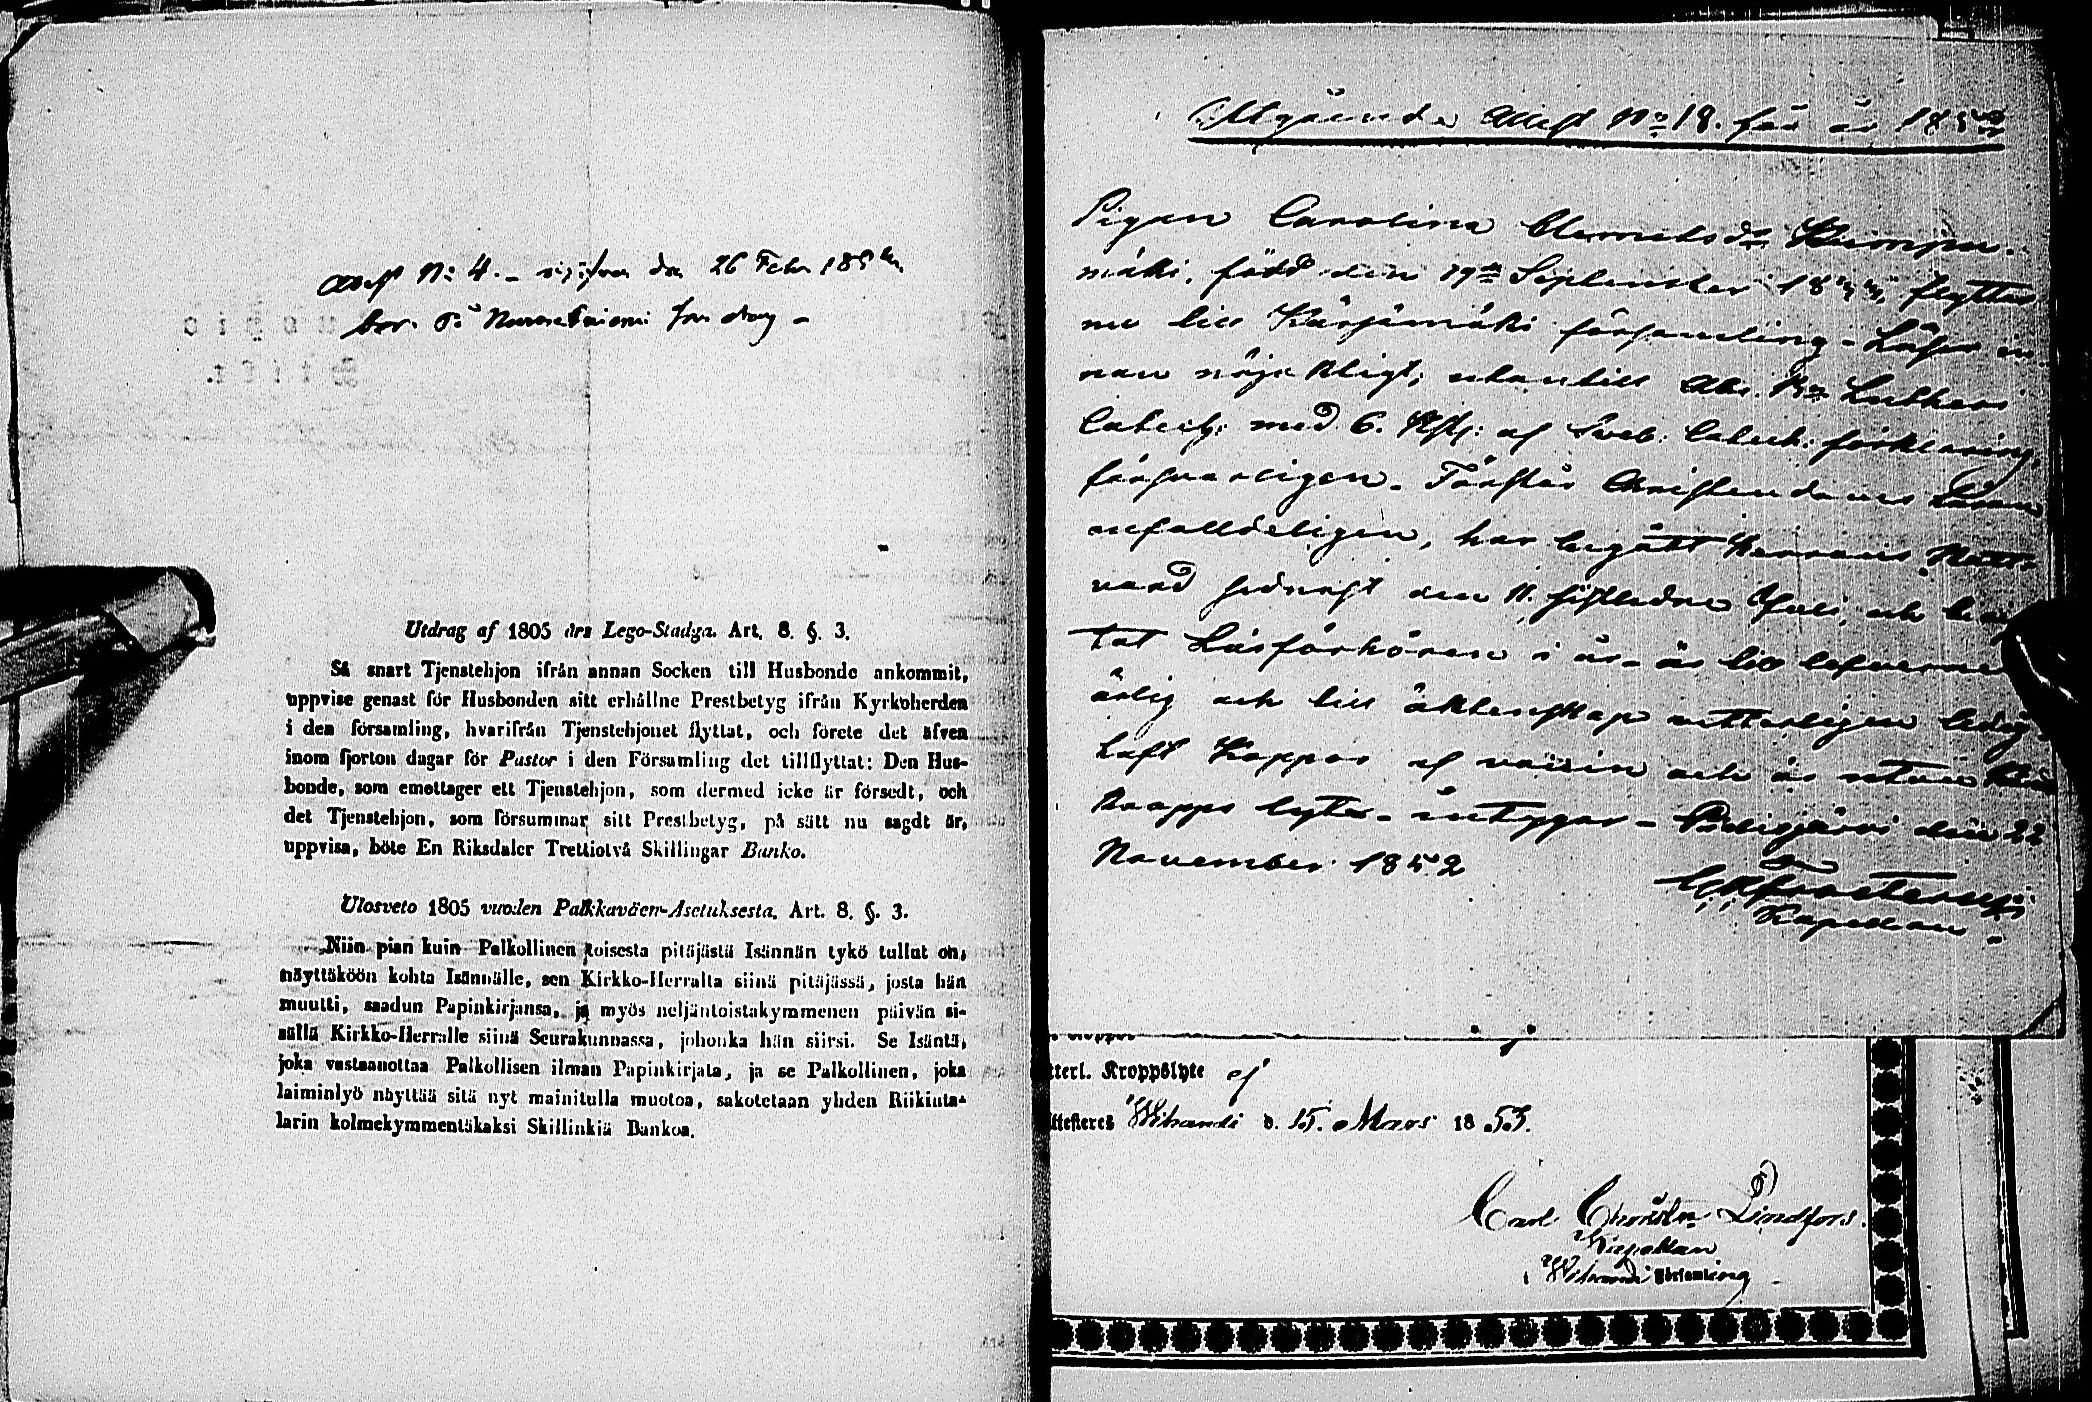 Attest N: 4. den 26 Febr 185
bor på för dag
Utdrag af 1805 års Lego-Stadga. Art. 8. §. 3.
Så snart Tjenstehjon ifrån annan Socken till Husbonde ankommit,
uppvise genast för Husbonden sitt erhållne Prestbetyg ifrån Kyrkoherden
i den församling, hvarifrån Tjenstehjonet flyttat, och förete det äfven
inom fjorton dagar för Pastor i den Församling det tillflyttat: Den Hus-
bonde, som emottager ett Tjenstehjon, som dermed icke är försedt, och
det Tjenstehjon, som försummar sitt Prestbetyg, på sätt nu sagdt är,
uppvisa, böte En Riksdaler Trettiotvå Skillingar Banko.
Ulosveto 1805 vuoden Palkkaväen-Asetuksesta. Art. 8. §. 3.
Niin pian kuin Palkollinen toisesta pitäjästä Isännän tykö tullut on,
näyttäköön kohta Isännälle, sen Kirkko-Herralta siinä pitäjässä, josta hän
muutti, saadun Papinkirjansa, ja myös neljäntoistakymmenen päivän si-
sällä Kirkko-Herralle siinä Seurakunnassa, johonka hän siirsi. Se Isäntä,
joka vastaanottaa Palkollisen ilman Papinkirjata, ja se Palkollinen, joka
laiminlyö näyttää sitä nyt mainitulla muotoa, sakotetaan yhden Riikinta-
larin kolmekymmentäkaksi Skillinkiä Bankoa.
Utgående Attest No 18. för år 1852
Pigan Carolina Clemetsdr Kumpu-
mäki, född den 19de September 1833, flyttar
nu till Kärsämäki församling - Läser in-
nan nöjaktligt, utantill Abc. Bn Lutheri
Catech: med 6. Hfst: af Sveb. Catech: förklaring
försvarligen. Förstår Christendoms Läran
enfalldeligen, har begått Herrans Natt-
vard sednast den 11. sistledne Juli, och bevi-
tat Läsförhören i år - är till lefverne
ärlig och till äktenskap witterligen ledig,
haft Koppor af naturen och är utan
kropps lyte - intygar - Pidisjärvi den 22
November 1852
Kapellan.
tterl. Kroppslyte ej
ttesteres Wihandi d. 15. Mars 18.53.
Carl Christn Lindfors.
Kapellan
i Wihandi Församling